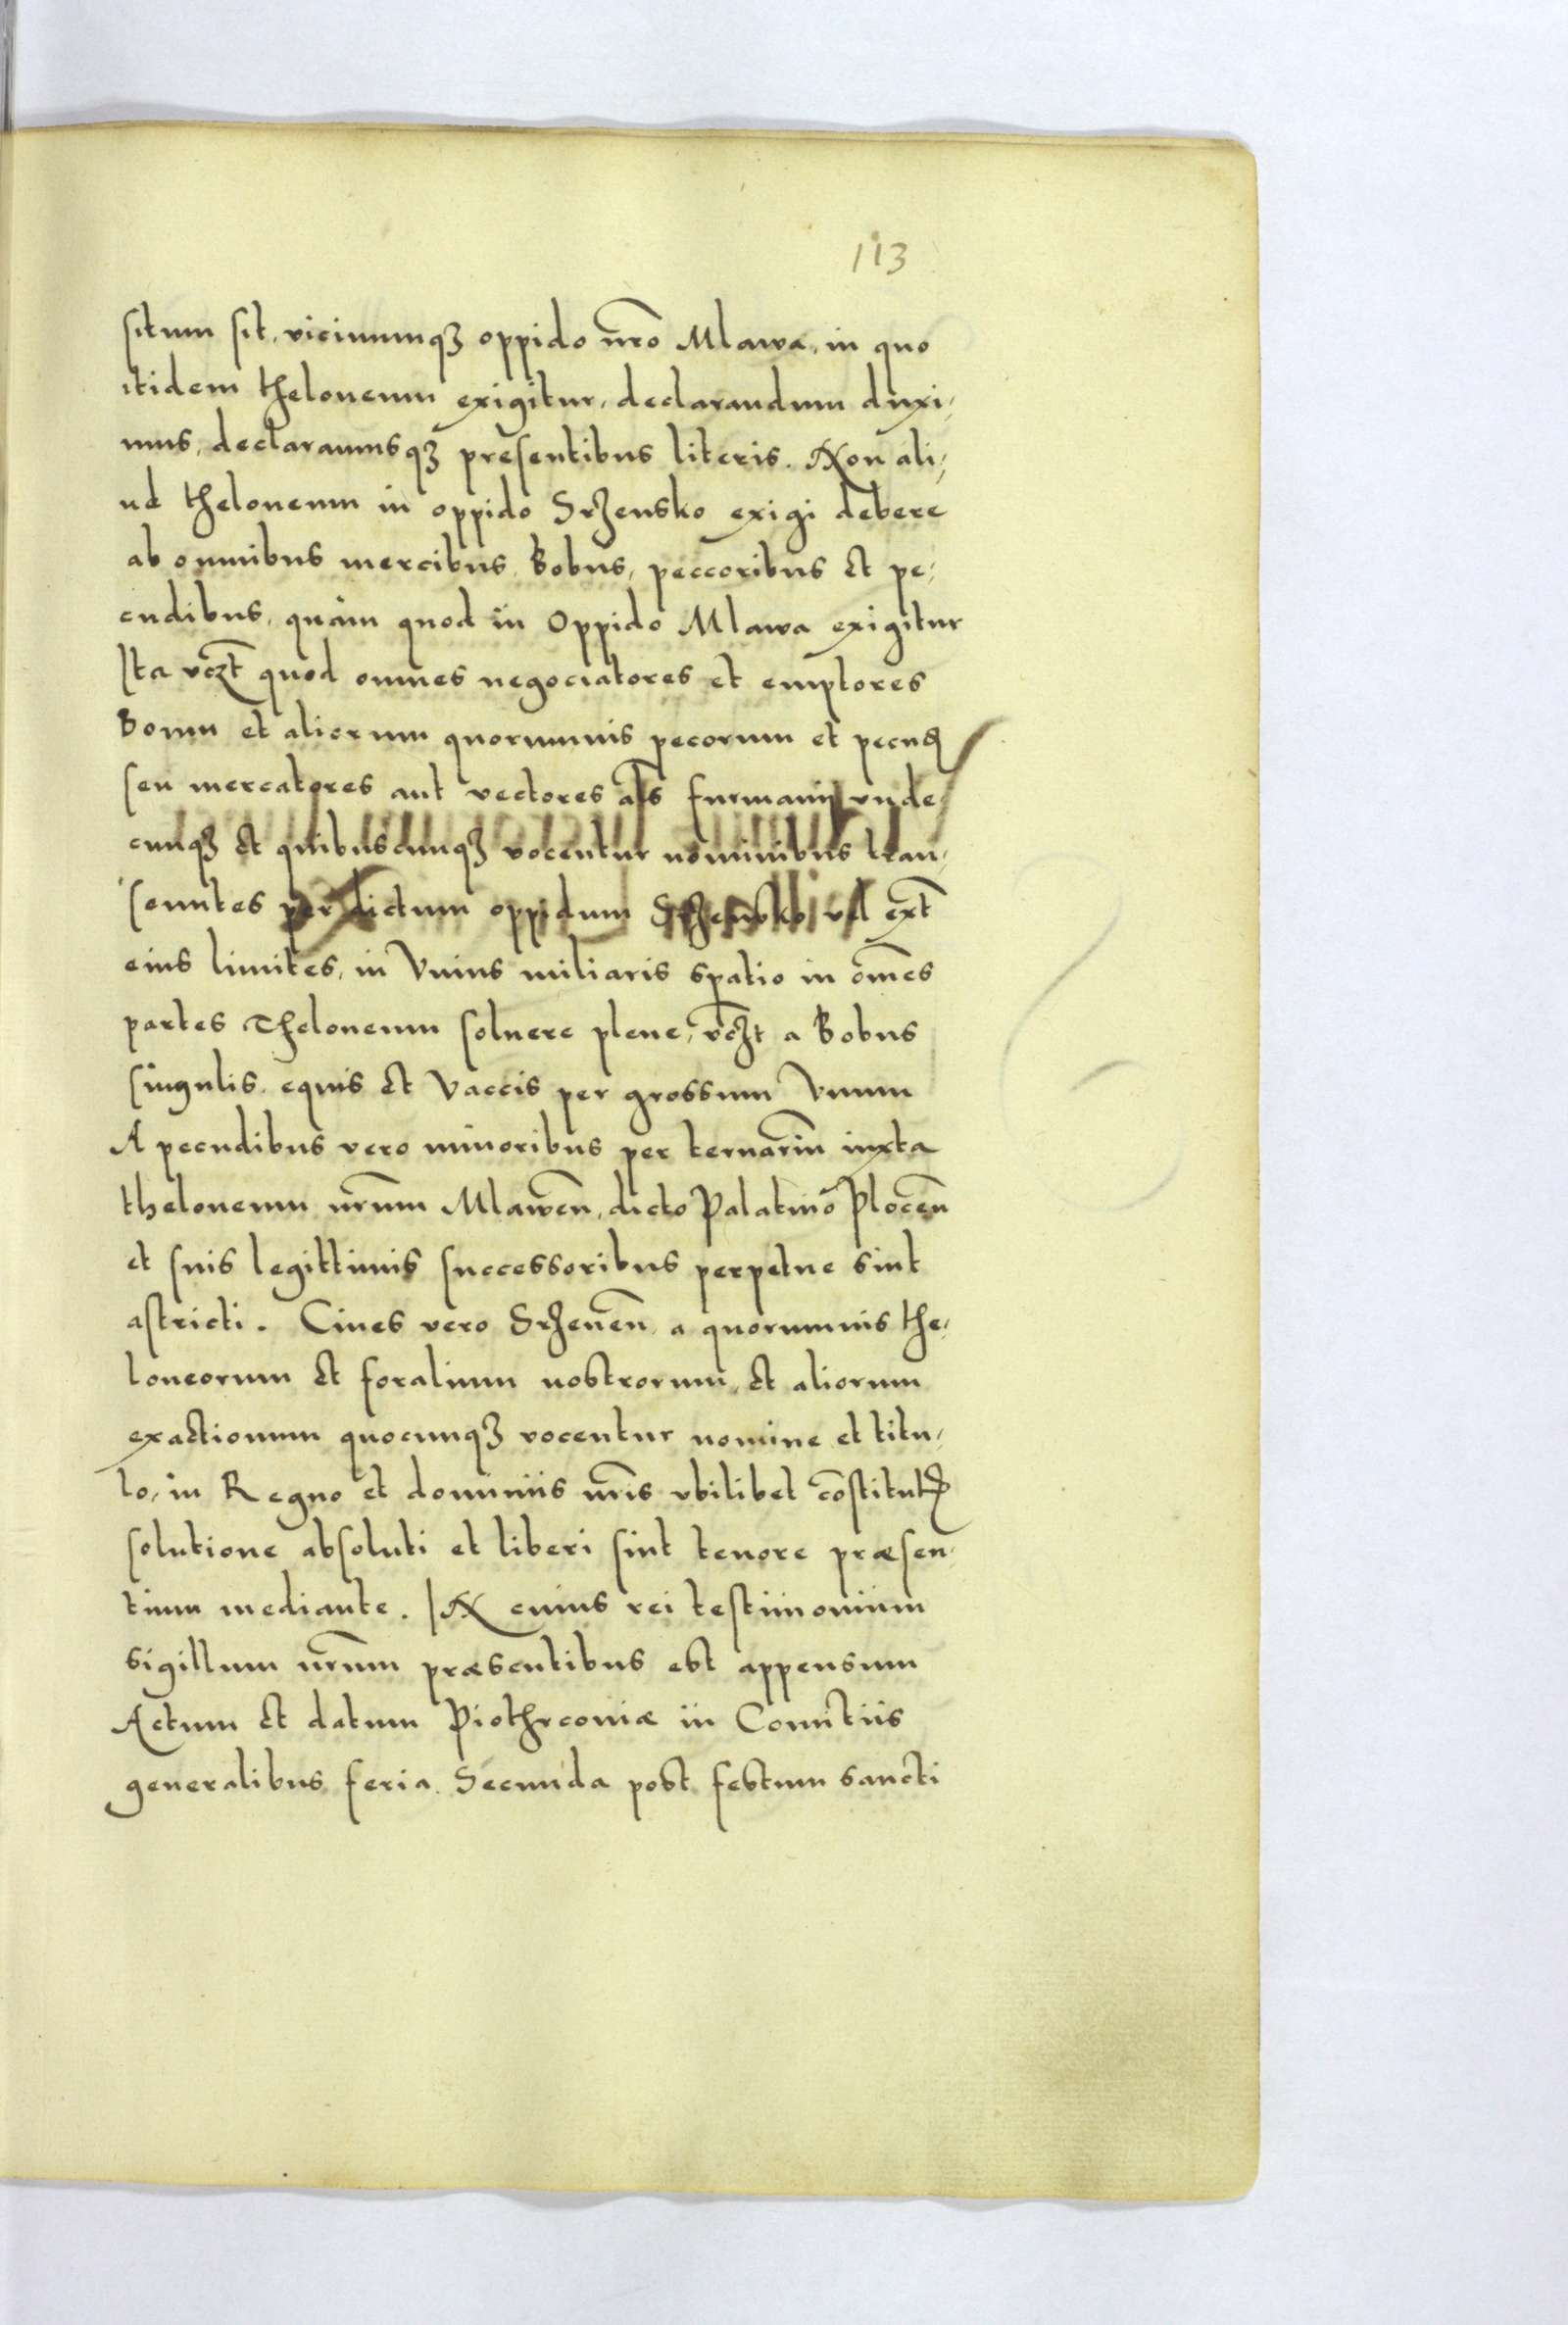 113
situm sit, vicinumqꝫ oppido nr̃o Mlawa, in quo
itidem theloneum exigitur, declarandum duxi,
mus, declaramusqꝫ presentibus literis. Non ali,
ud theloneum in oppido Srzensko exigi debere
ab omnibus mercibus, Bobus, peccoribus et pe,
cudibus, quàm quod in Oppido Mlawa exigitur
Ita vczt̃ quod omnes negociatores et emptores
Boum et aliorum quorumuis pecorum et pecuꝺ
seu mercatores aut vectores al̃s furmanij vnde,
cunqꝫ et quibuscunqꝫ vocentur nominibus tran,
seuntes per dictum oppidum Srzensko vel ext̃
eius limites, in Vnius miliaris spatio in om̃es
partes Theloneum soluere plene, vcz̃t a Bobus
singulis, equis et Vaccis per grossum Vnum
A pecudibus vero minoribus per ternariũ iuxta
theloneum nr̃um Mlawen̄, dicto Palatino Plocen̄
et suis legittimis successoribus perpetue sint
astricti. Ciues vero Srzenen̄, a quorumuis the,
loneorum et foralium nostrorum, et aliorum
exactionum quocunqꝫ vocentur nomine et titu,
lo, in Regno et dominiis nr̃is vbilibet cõstitutꝝ
solutione absoluti et liberi sint tenore præsen,
tium mediante. IN cuius rei testimonium
sigillum nr̃um præsentibus est appensum
Actum et datum Piothrcoviæ in Comitiis
generalibus feria Secunda post festum sancti